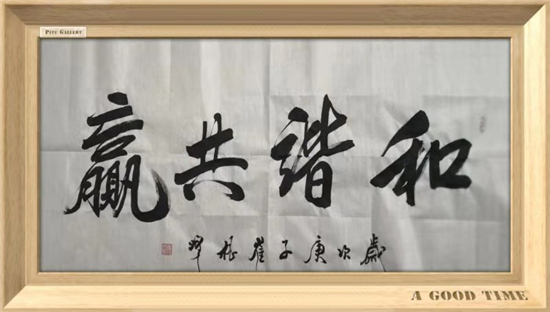 PITU GALLERY
和谐共赢
歲次庚子崔
A GOOD TIME